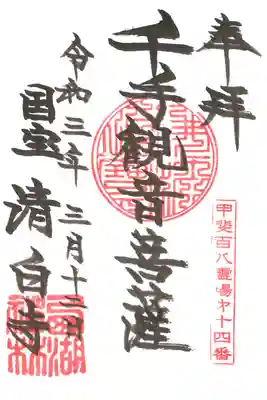 奉拝
甲斐百八霊場第十四番
千手観音菩薩
令和三年 三月十二日
国宝 清白寺